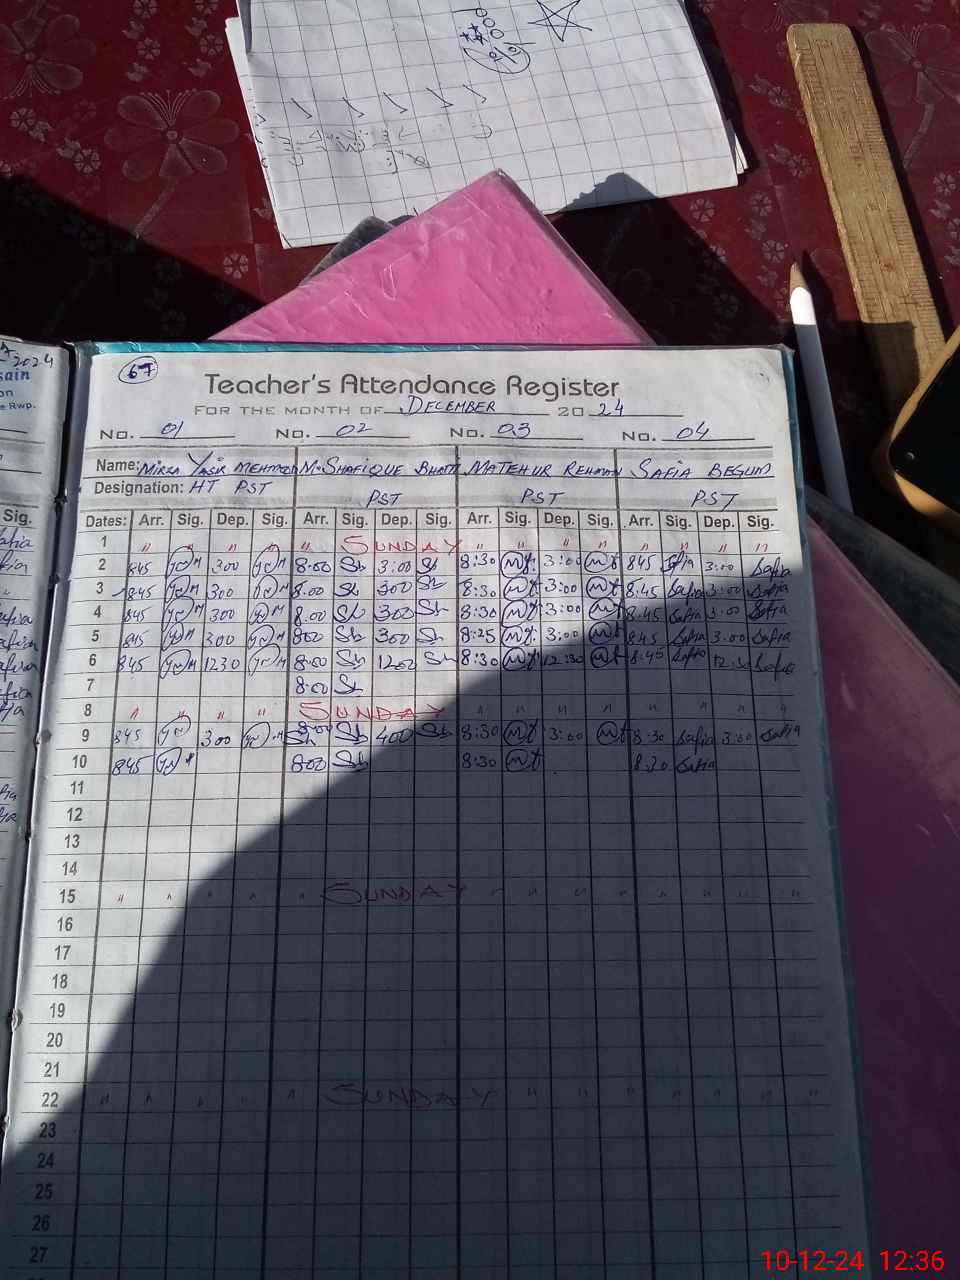 2024
sain
on
e Rwp.
Sig.
67
Teacher's Attendance Register
FOR THE MONTH OF DECEMBER 2024
No. 01 No. 02 No. 03 No. 04
Name: MIRZA YASIR MEHMOOD M. SHAFIQUE BHATTI MATTEHUR REHMAN SAFIA BEGUM
Designation: HT PST PST PST PST
Dates: Arr. Sig. Dep. Sig. Arr. Sig. Dep. Sig. Arr. Sig. Dep. Sig. Arr. Sig. Dep. Sig.
1 " " " " " SUNDAY " " " " " " " "
2 845 300 8:00 Sh 3:00 Sh 8:30 Mt 3:00 Mt 845 Safia 3:00 Safia
3 845 300 8:00 Sh 300 Sh 8:30 Mt 3:00 Mt 8:45 Safia 3:00 Safia
4 845 300 8:00 Sh 300 Sh 8:30 Mt 3:00 Mt 8:45 Safia 3:00 Safia
5 845 300 800 Sh 300 Sh 8:25 Mt 3:00 Mt 845 Safia 3:00 Safia
6 845 1230 8:00 Sh 1200 Sh 8:30 Mt 12:30 Mt 8:45 Safia 12:30 Safia
7 8:00 Sh
8 " " " " SUNDAY " " " " " " " "
9 845 300 8:00 Sh 400 Sh 8:30 Mt 3:00 Mt 8:30 Safia 3:00 Safia
10 845 800 Sh 8:30 Mt 8:30 Safia
11
12
13
14
15 " " " " " SUNDAY " " " " " " " "
16
17
18
19
20
21
22 " " " " " SUNDAY " " " " " " "
23
24
25
26
27
10-12-24 12:36